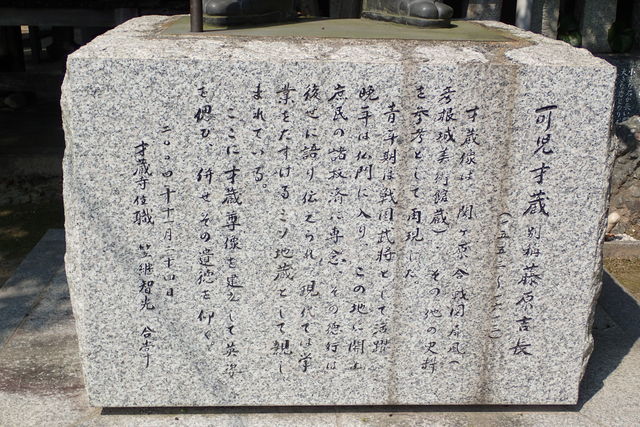 可児才蔵 別称 藤原吉長
(一五五一〜一六一三)
才蔵像は、関ヶ原合戦図屏風(
彦根城美術館蔵)、その他の史料
を参考として再現した。
青年期は戦国武将として活躍
晩年は仏門に入り、この地に開山
庶民の諸救済に専念、その徳行は
後世に語り伝えられ、現代では学
業をたすけるミソ地蔵として親し
まれている。
ここに才蔵尊像を建立して英姿
を偲び、併せその遺徳を仰ぐ。
二〇〇四年十一月二十四日
才蔵寺住職 智光 合掌